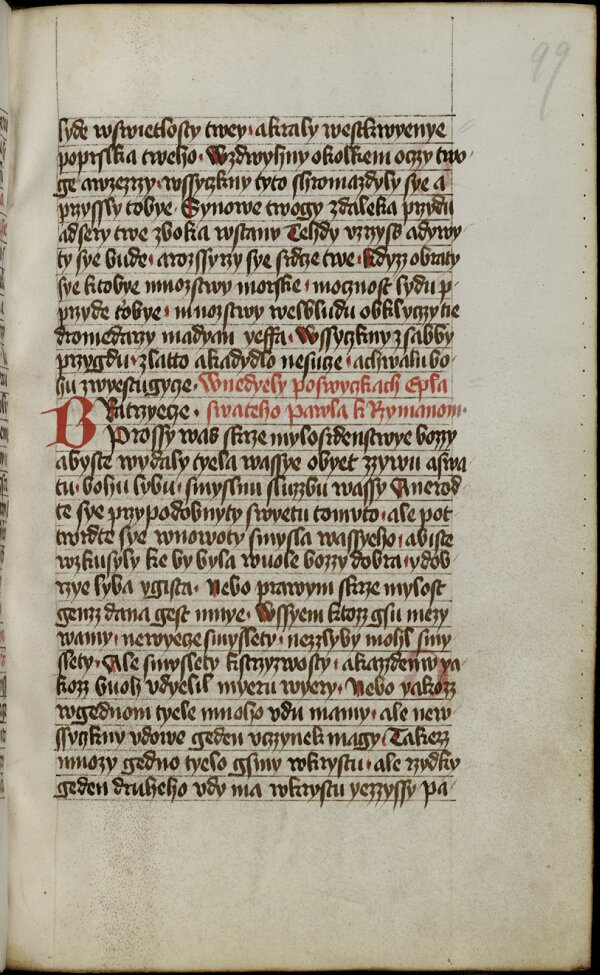 99
lyde wswietlosty twey · akraly westkwyenye
poprslka tweho · Wzdwyhny okolkem oczy two-
ge awzerzy · wssyczkny tyto shromazdyly sye a
przyssly tobye · Synowe twogy zdaleka przydu
adsery twe zboka wstanu Tehdy vzrzys adywy-
ty sye bude · arozssyrzy sye srdcze twe · Kdyz obraty
sye ktobye mnozstwy morske · mocznost lydu p-
przyde tobye · mnozstwy welbludu obklyczy tie
dromedarzy madyan yeffa · Wssyczkny zsabby
przygdu · zlatto akadydlo nesucze · achwalu bo-
hu zwyestugycze · Wnedyely poswyczkach Epla
Bratrzyecze · swateho pawla k Rzymanom ·
Prossy was skrze mylosrdenstwye bozzy
abyste wydaly tyela wassye obyet zzywu aswa
tu · bohu lybu · smyslnu sluzbu wassy Anerod
te sye przypodobnyty swyetu tomuto · ale pot
twrdte sye wnowoty smysla wassyeho · abiste
wzkusyly ke by byla wuole bozzy dobra · ydob
rzye lyba ygista · Nebo prawym skrze mylost
genzz dana gest mnye · Wssyem ktozz gsu mezy
wamy · newyecze smyslety · nezzlyby mohl smy
slety · Ale smyslety kstrzyzwosty · akazdemu ya-
kozz buoh vdyelil myeru wyery · Nebo yakozz
wgednom tyele mnoho vdu mamy · ale new
ssyczkny vdowe geden vczynek magy · Takezz
mnozy gedno tyelo gsmy wkrystu · ale zzydky
geden druheho vdy ma wkrystu yezzyssy pa-